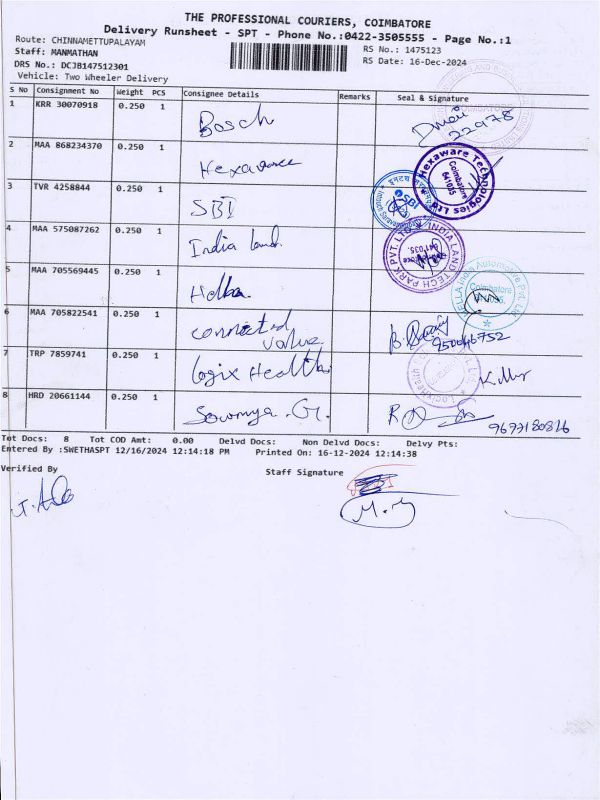 THE PROFESSIONAL COURIERS, COIMBATORE
Delivery Runsheet - SPT - Phone No.:0422-3505555 - Page No.:1
Route: CHINNAMETTUPALAYAM
RS No.: 1475123
Staff: MANMATHAN
RS Date: 16-Dec-2024
DRS No.: DCJB147512301
Vehicle: Two Wheeler Delivery
S No Consignment No Weight PCS Consignee Details Remarks Seal & Signature
1 KRR 30070918 0.250 1 Bosch 22978
2 MAA 868234370 0.250 1 Hexaware Hexaware Technologies Ltd Coimbatore 641035
3 TVR 4258844 0.250 1 SBI SBI
4 MAA 575087262 0.250 1 India land. INDIA LAND TECH PARK PVT. LTD 641 035.
5 MAA 705569445 0.250 1 Hella India Automotive Pvt. Ltd. Coimbatore
6 MAA 705822541 0.250 1 connected value
7 TRP 7859741 0.250 1 Logix Health
8 HRD 20661144 0.250 1 Sowmya .G.
Tot Docs: 8 Tot COD Amt: 0.00 Delvd Docs: Non Delvd Docs: Delvy Pts:
Entered By :SWETHASPT 12/16/2024 12:14:18 PM Printed On: 16-12-2024 12:14:38
Verified By
Staff Signature